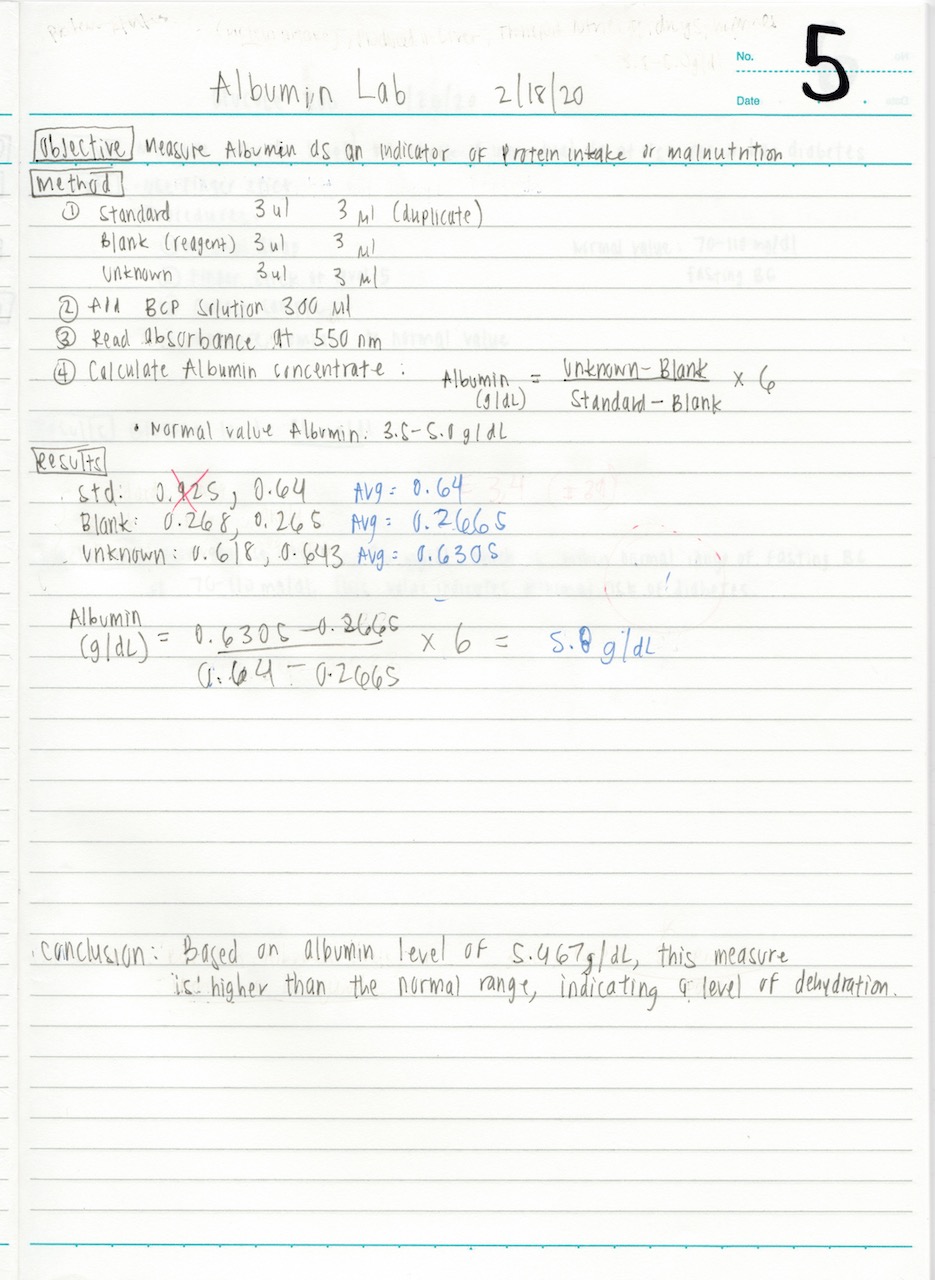 No.
5
Albumin Lab 2/18/20
Date
Objective Measure Albumin as an indicator of protein intake or malnutrition
Method
① Standard 3 ul 3 μl (duplicate)
Blank (reagent) 3 ul 3 μl
Unknown 3 ul 3 μl
② Add BCP solution 300 μl
③ Read absorbance at 550 nm
④ Calculate Albumin concentrate : Albumin (g/dL) = Unknown - Blank / Standard - Blank × 6
• Normal value Albumin: 3.5-5.0 g/dL
Results
Std: 0.925, 0.64 Avg = 0.64
Blank: 0.268, 0.265 Avg = 0.2665
Unknown: 0.618, 0.643 Avg = 0.6305
Albumin (g/dL) = 0.6305 - 0.2665 / 0.64 - 0.2665 × 6 = g/dL
Conclusion: Based on albumin level of 5.467g/dL, this measure
is higher than the normal range, indicating a level of dehydration.